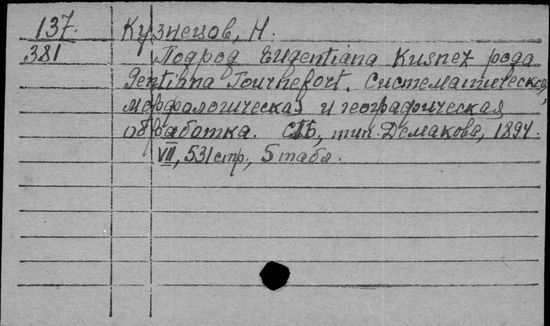 137. Кузнецов, Н.
381 Подрод Eugentiana Kusnez рода
Gentiana Tournefort. Систематическая,
морфологическая и географическая
обработка. СПБ, тип. Демакова, 1894.
VII, 531 стр., 5 табл.